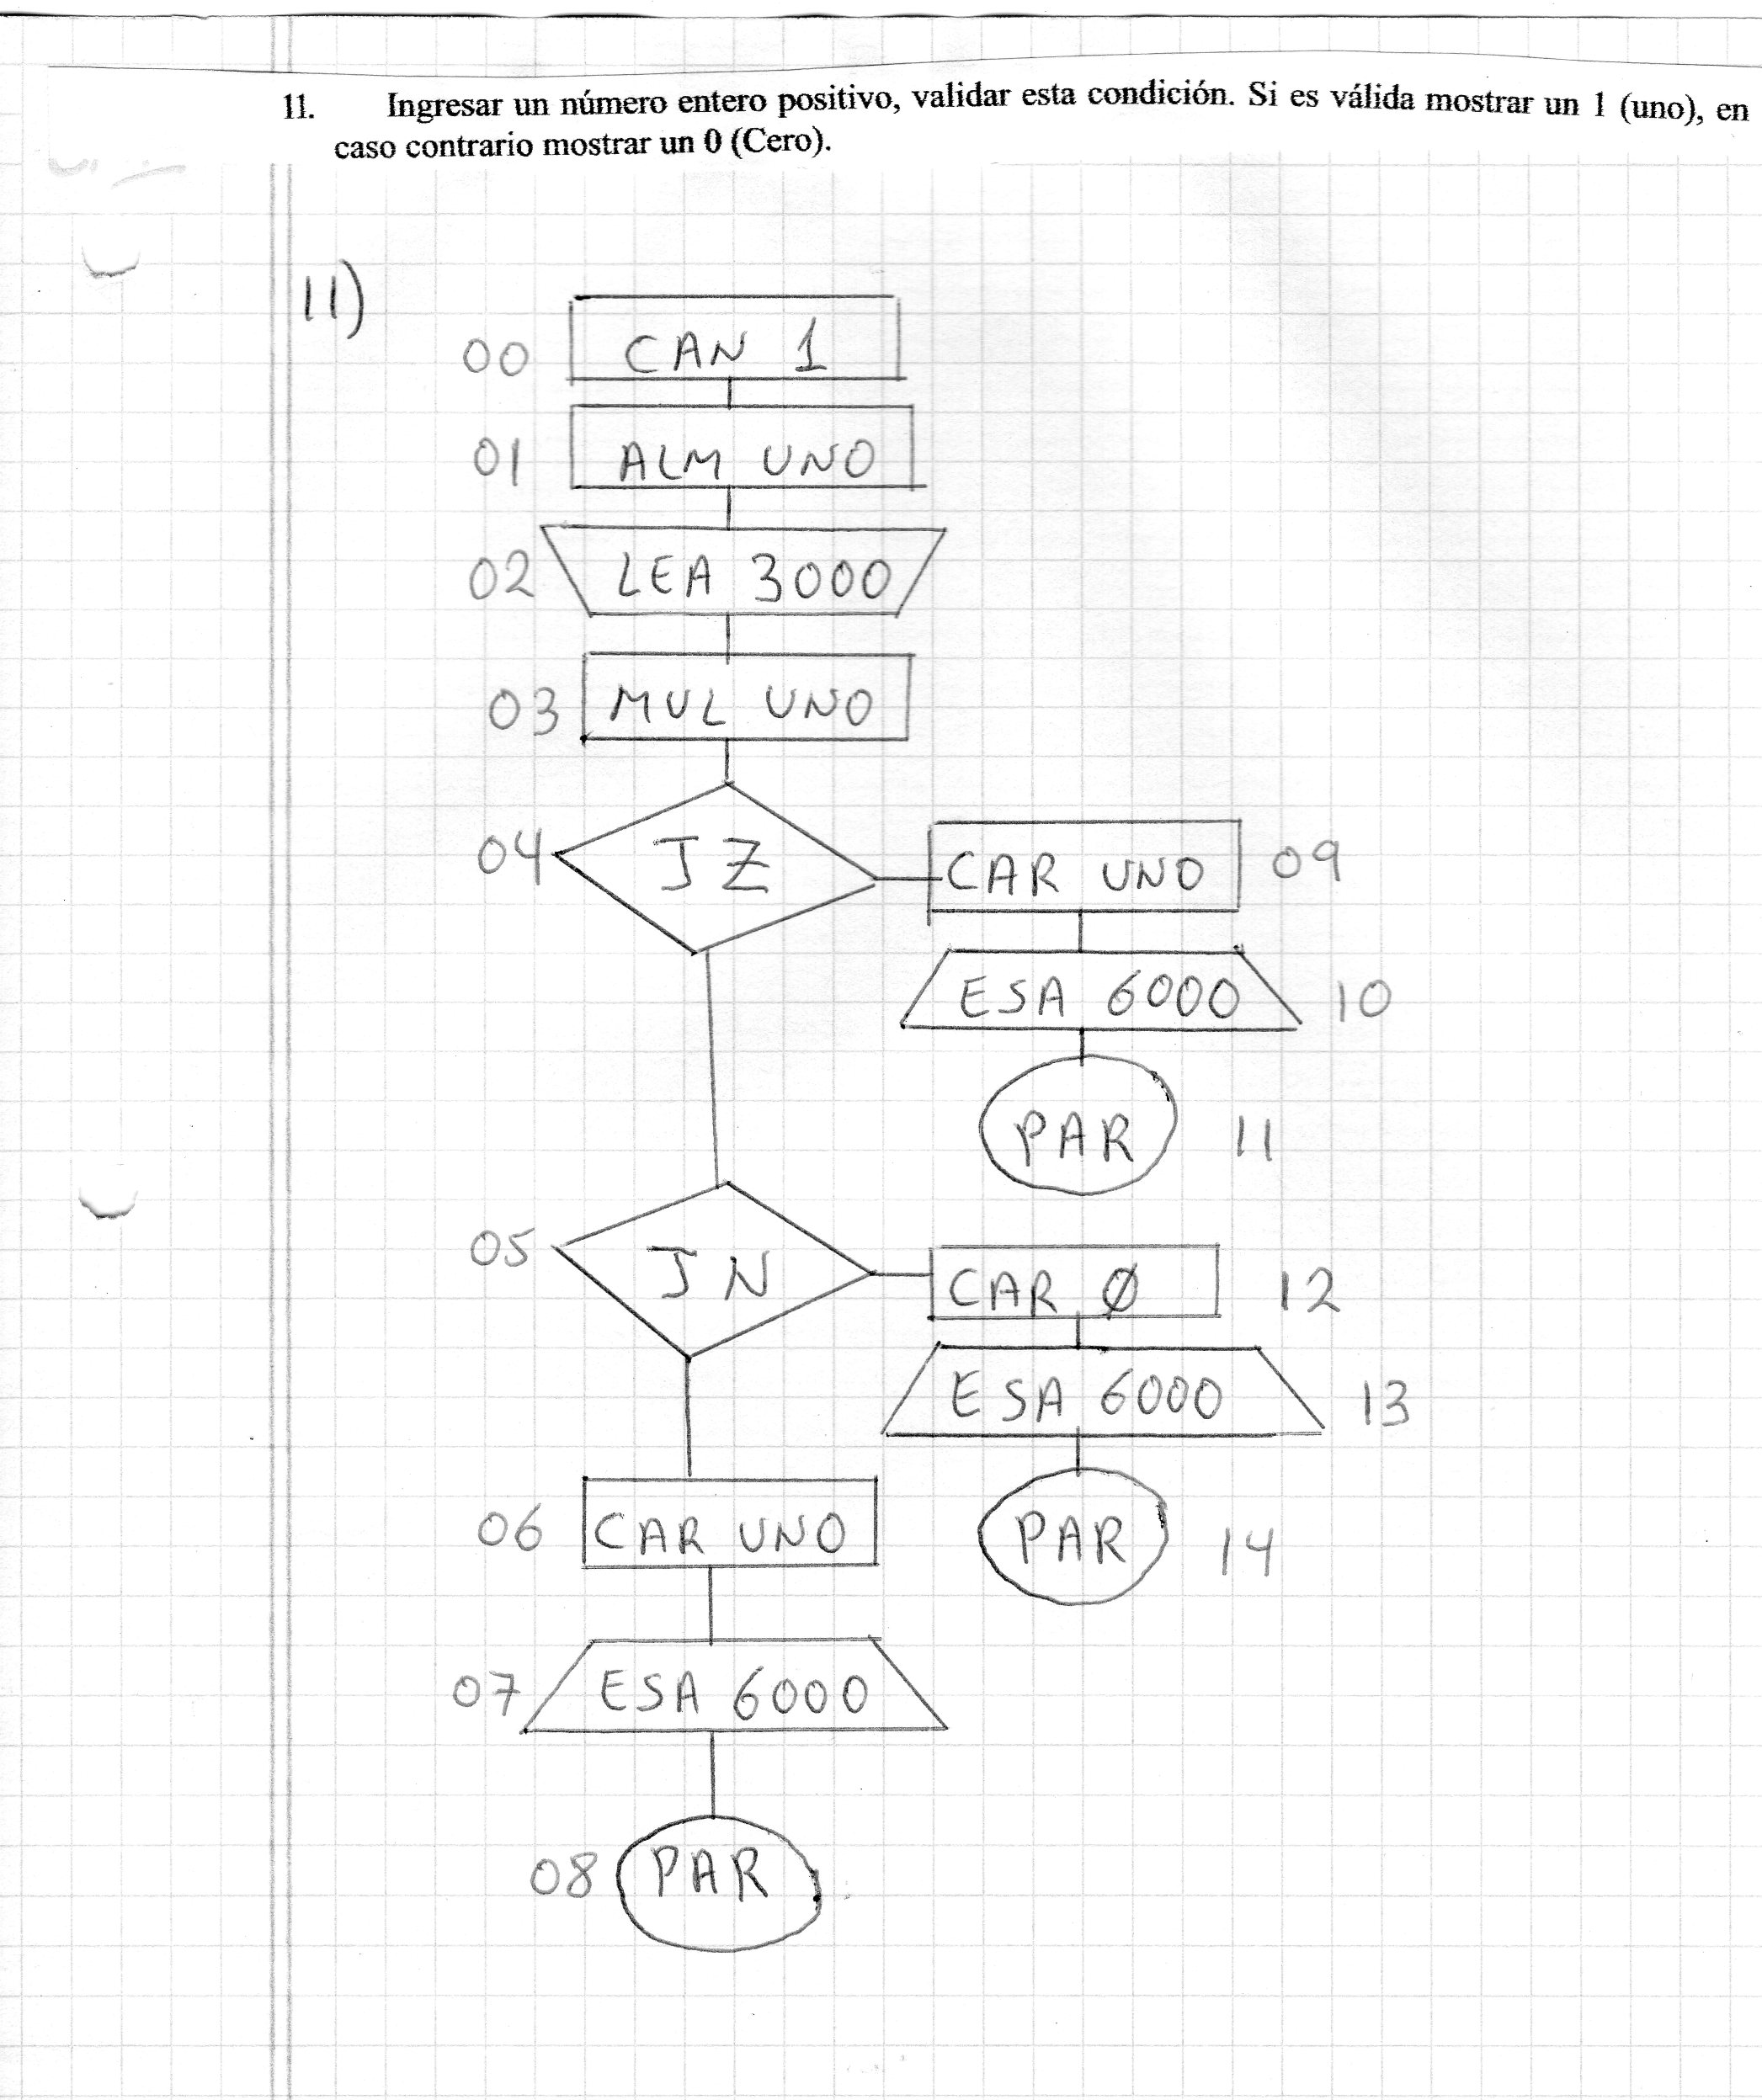 11. Ingresar un número entero positivo, validar esta condición. Si es válida mostrar un 1 (uno), en
caso contrario mostrar un 0 (Cero).
11)
00 CAN 1
01 ALM UNO
02 LEA 3000
03 MUL UNO
04 JZ CAR UNO 09
ESA 6000 10
PAR 11
05 JN CAR Ø 12
ESA 6000 13
06 CAR UNO PAR 14
07 ESA 6000
08 PAR